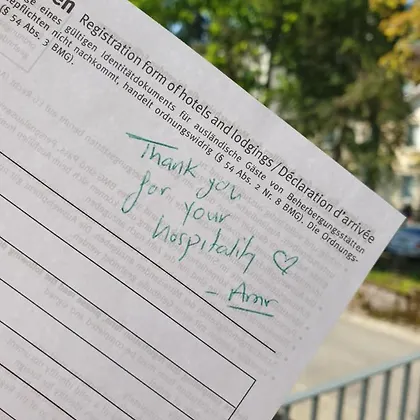 en Registration form of hotels and lodgings / Déclaration d'arrivée
eines gültigen Identitätdokuments für ausländische Gäste von Beherbergungsstätten
pflichten nicht nachkommt, handelt ordnungswidrig (§ 54 Abs. 2 Nr. 8 BMG). Die Ordnungs-
(§ 54 Abs. 3 BMG).
Thank you
for your
hospitality ♡
- Amr